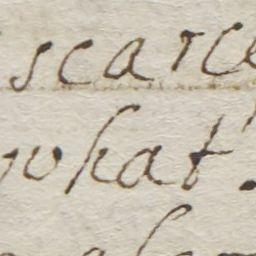 scarce
what